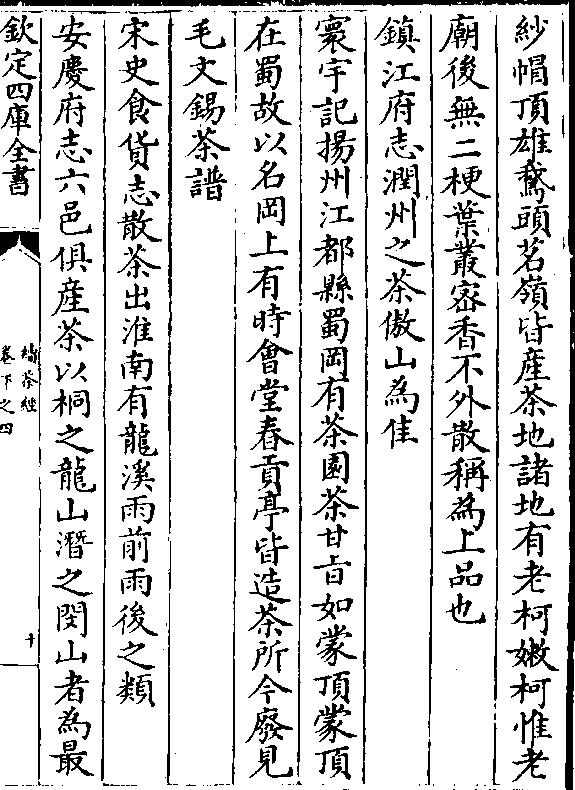 紗帽頂雄鵞頭茗嶺皆産茶地諸地有老柯嫩柯惟老
廟後無二梗葉叢密香不外散稱為上品也
鎮江府志潤州之茶傲山為佳
寰宇記揚州江都縣蜀岡有茶園茶甘旨如蒙頂蒙頂
在蜀故以名岡上有時會堂春貢亭皆造茶所今廢見
毛文錫茶譜
宋史食貨志散茶出淮南有龍溪雨前雨後之類
安慶府志六邑俱産茶以桐之龍山潛之閔山者為最
欽定四庫全書
續茶經
卷下之四
十